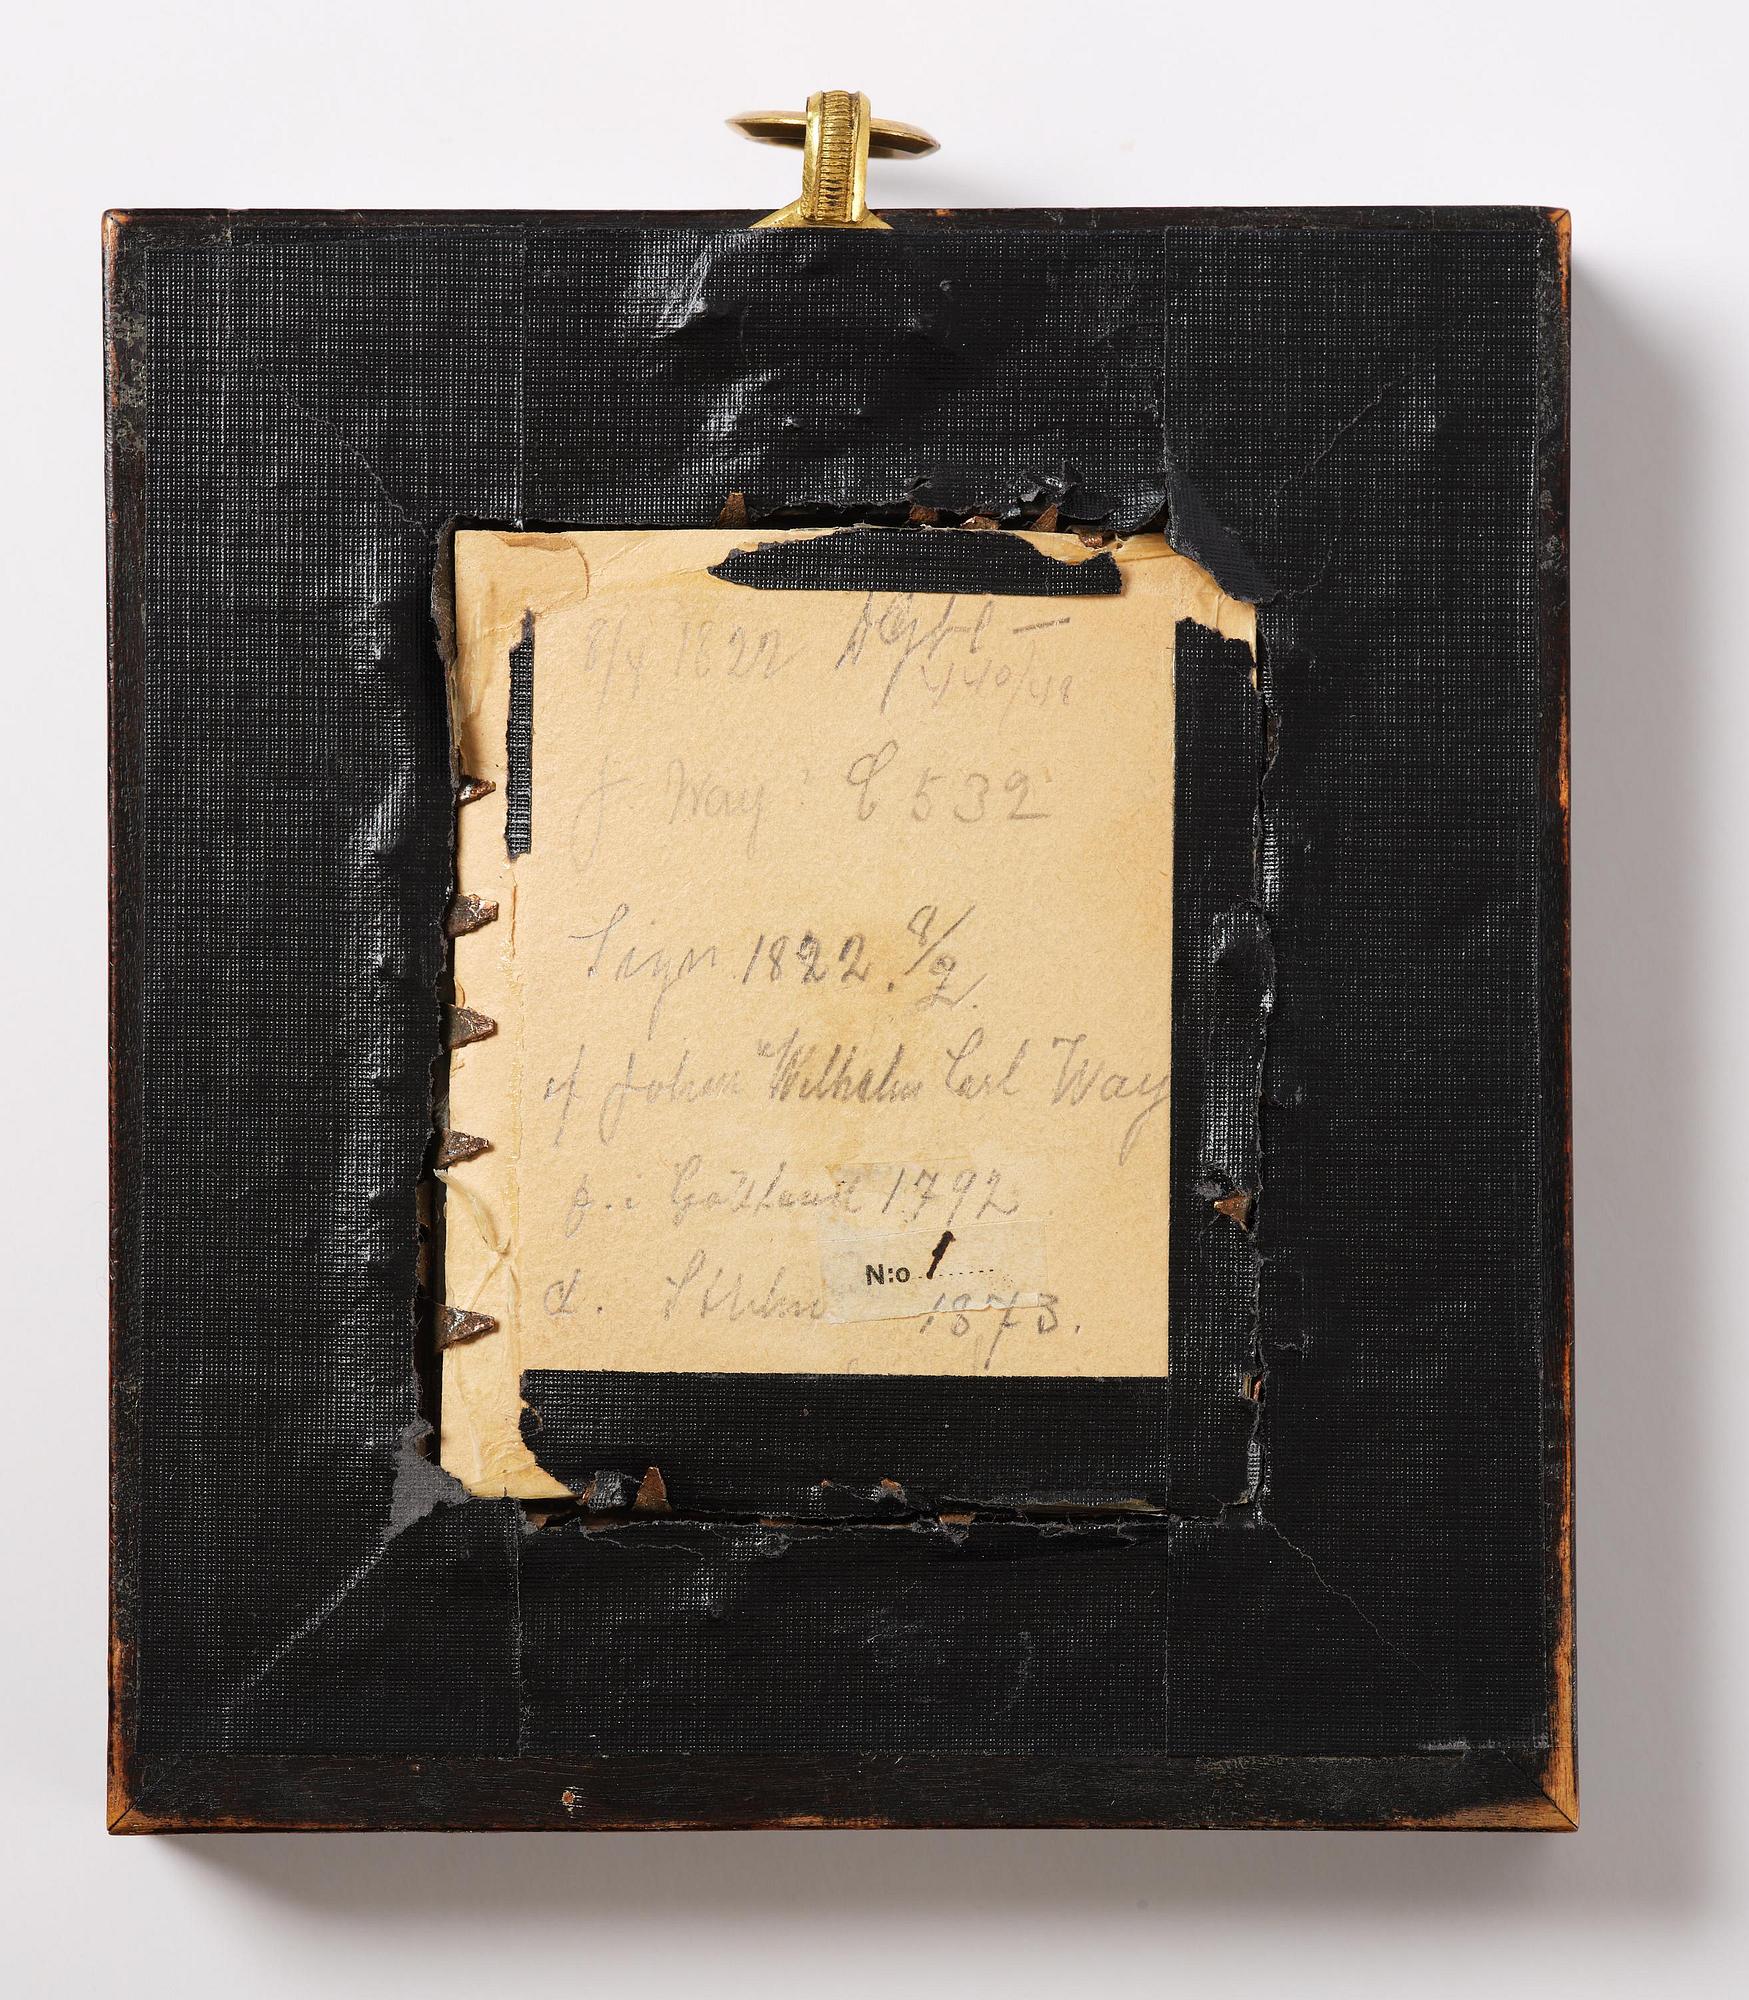 8/4 1822
440/48
J Way: C 532
Sign 1822. 8/2.
af Johan Wilhelm Carl Way
f. i Gottland 1792
N:o 1
d. 1873.